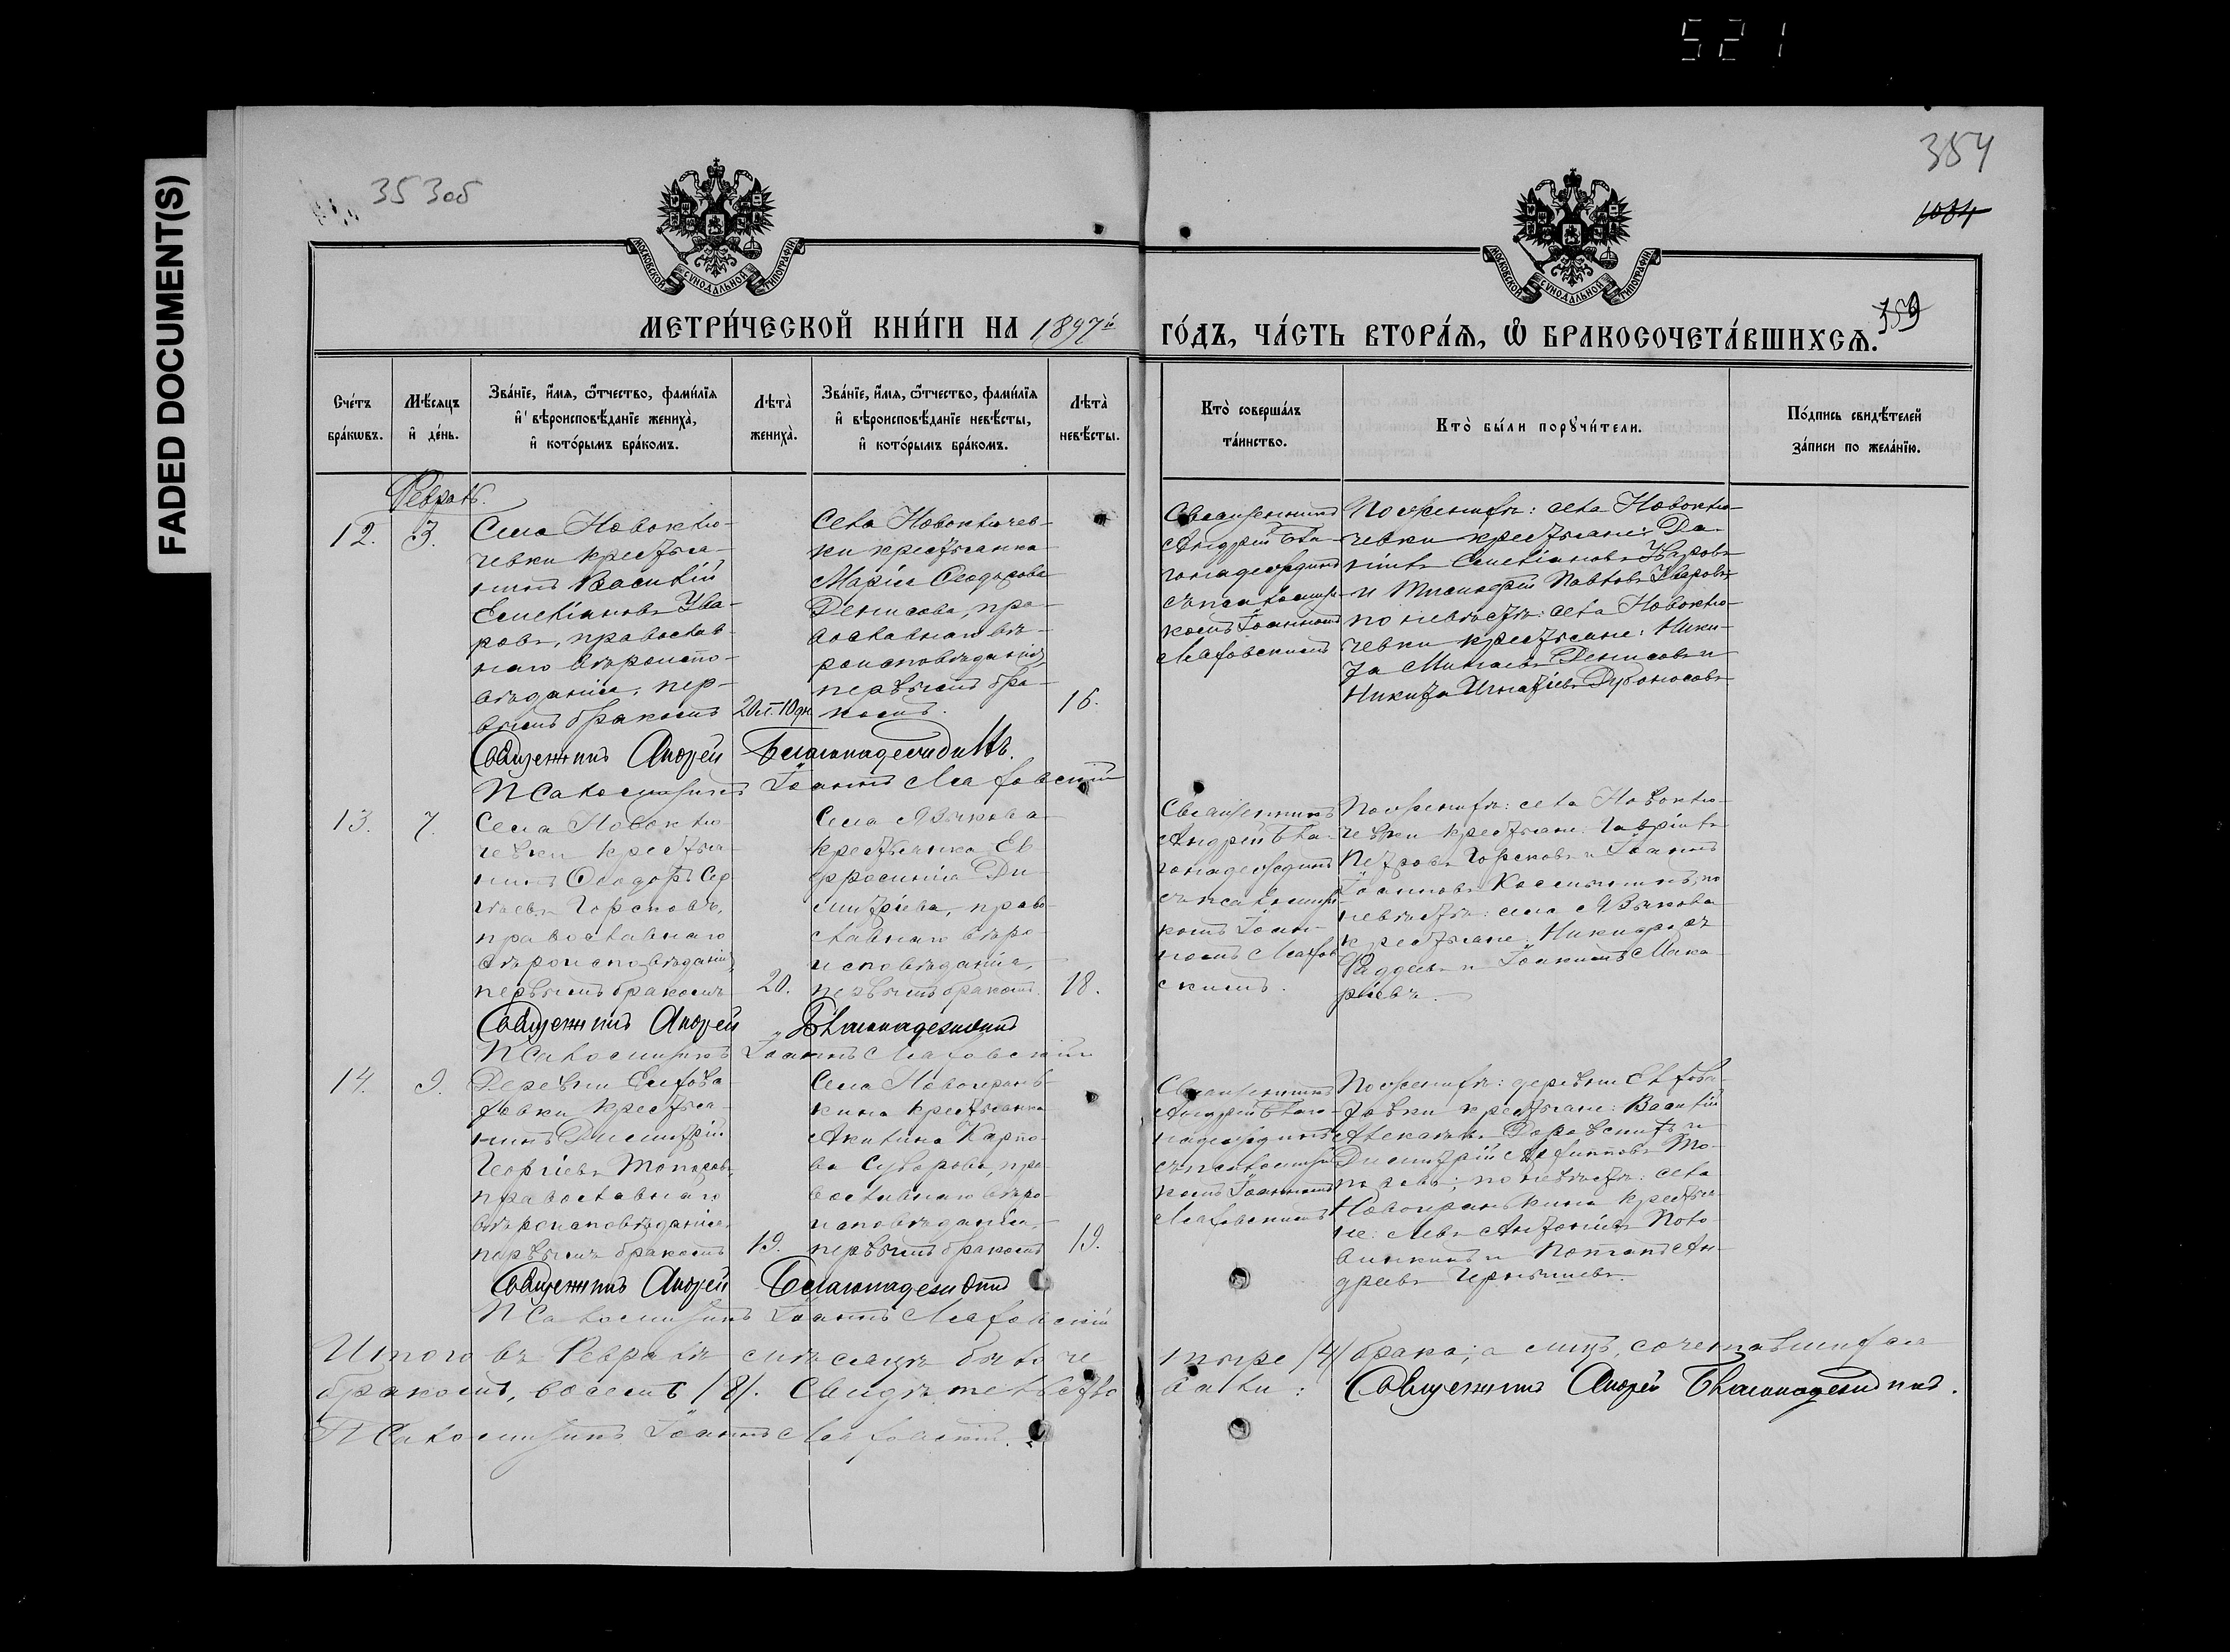 521
FADED DOCUMENT(S)
353об
354
1084
359
МОСКОВСКОЙ СѴНОДАЛЬНОЙ ТИПОГРАФІИ
МОСКОВСКОЙ СѴНОДАЛЬНОЙ ТИПОГРАФІИ
МЕТРИ́ЧЕСКОЙ КНИ́ГИ НА 1897й
ГО́ДЪ, ЧА́СТЬ ВТОРА́Ѧ, Ѡ҆ БРАКОСОЧЕТА́ВШИХСѦ.
Сче́тъ
бра́кѡвъ.
Мѣ́сяцъ
и҆ де́нь.
Зва́нїе, и҆́мѧ, ѻ҆́тчество, фами́лїѧ
и҆ вѣроисповѣ́данїе жениха̀,
и҆ кото́рымъ бра́комъ.
Лѣта̀
жениха̀.
Зва́нїе, и҆́мѧ, ѻ҆́тчество, фами́лїѧ
и҆ вѣроисповѣ́данїе невѣ́сты,
и҆ кото́рымъ бра́комъ.
Лѣта̀
невѣ́сты.
Кто̀ соверша́лъ
та́инство.
Кто̀ бы́ли порꙋчи́тели.
По́дпись свидѣ́телей
за́писи по жела́нїю.
Февраль.
12.
3.
Села Новоклю-
чевки крестья-
нинъ Василій
Емеліановъ Ува-
ровъ, православ-
наго вѣроиспо-
вѣданія, пер-
вымъ бракомъ
20л. 10дн
Села Новоключев-
ки крестьянка
Марія Ѳеодорова
Денисова, пра-
вославнаго вѣ-
роисповѣданія,
первымъ бра-
комъ.
16.
Священникъ
Андрей Бла-
гонадеждинъ
съ псаломщи-
комъ Іоанномъ
Маловскимъ
По женихѣ: села Новоклю-
чевки крестьяне: Да-
ніилъ Емеліановъ Уваровъ
и Тимофей Павловъ Уваровъ
по невѣстѣ: села Новоклю-
чевки крестьяне: Ники-
та Минаевъ Денисовъ и
Никита Игнатіевъ Дубоносовъ
Священникъ Андрей Благонадеждинъ.
Псаломщикъ Іоаннъ Маловскій
13.
7.
Села Новоклю-
чевки крестья-
нинъ Ѳеодоръ Сер
гѣевъ Горсковъ,
православнаго
вѣроисповѣданія,
первымъ бракомъ
20.
Села Языкова
крестьянка Ев
фросинія Ди-
митріева, право-
славнаго вѣро-
исповѣданія,
первымъ бракомъ.
18.
Священникъ
Андрей Бла-
гонадеждинъ
съ псаломщи
комъ Іоан-
номъ Малов
скимъ.
По женихѣ: села Новоклю-
чевки крестьяне: Гавріилъ
Петровъ Горсковъ и Іоаннъ
Іоанновъ Косынкинъ, по
невѣстѣ: села Языкова
крестьяне: Никифоръ
Фаддеевъ и Іоакимъ Мака-
ріевъ.
Священникъ Андрей Благонадеждинъ
Псаломщикъ Іоаннъ Маловскій
14.
9.
Деревни Елхова-
товки крестья-
нинъ Димитрій
Георгіевъ Топоровъ,
православнаго
вѣроисповѣданія,
первымъ бракомъ
19.
Села Новопрань-
кина крестьянка
Акилина Карпо-
ва Суворова, пра-
вославнаго вѣро-
исповѣданія,
первымъ бракомъ
19.
Священникъ
Андрей Благо-
надеждинъ
съ псаломщи
комъ Іоанномъ
Маловскимъ
По женихѣ: деревни Елхова-
товки крестьяне: Василій
Алексѣевъ и
Димитрій Филипповъ То-
поровъ; по невѣстѣ: села
Новопранькина крестья-
не: Левъ Антоніевъ Поло-
винкинъ и Потапъ Ан-
дреевъ Чернышевъ.
Священникъ Андрей Благонадеждинъ
Псаломщикъ Іоаннъ Маловскій
Итого въ Февралѣ мѣсяцѣ было че
тыре /4/ брака; а лицъ, сочетавшихся
бракомъ, восемь /8/. Свидѣтельство
вали: Священникъ Андрей Благонадеждинъ.
Псаломщикъ Іоаннъ Маловскій.